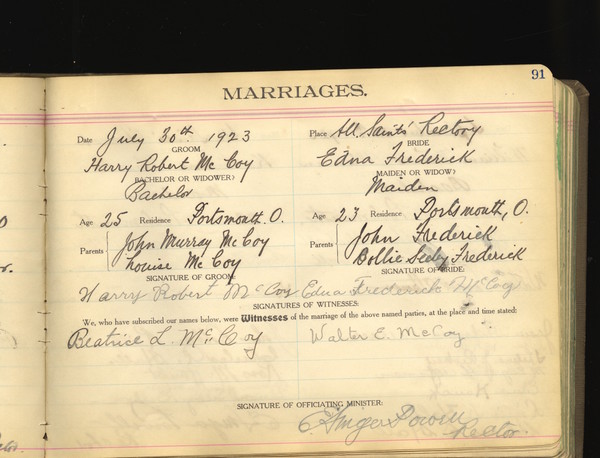 91
MARRIAGES.
Date July 30th 1923 Place All Saints' Rectory
GROOM BRIDE
Harry Robert McCoy Edna Frederick
BACHELOR OR WIDOWER? MAIDEN OR WIDOW?
Bachelor Maiden
Age 25 Residence Portsmouth O. Age 23 Residence Portsmouth, O.
Parents John Murray McCoy John Frederick
Louise McCoy Bollie Seely Frederick
SIGNATURE OF GROOM: SIGNATURE OF BRIDE:
Harry Robert McCoy Edna Frederick McCoy
SIGNATURES OF WITNESSES:
We, who have subscribed our names below, were Witnesses of the marriage of the above named parties, at the place and time stated:
Beatrice L. McCoy Walter E. McCoy
SIGNATURE OF OFFICIATING MINISTER:
Rector.